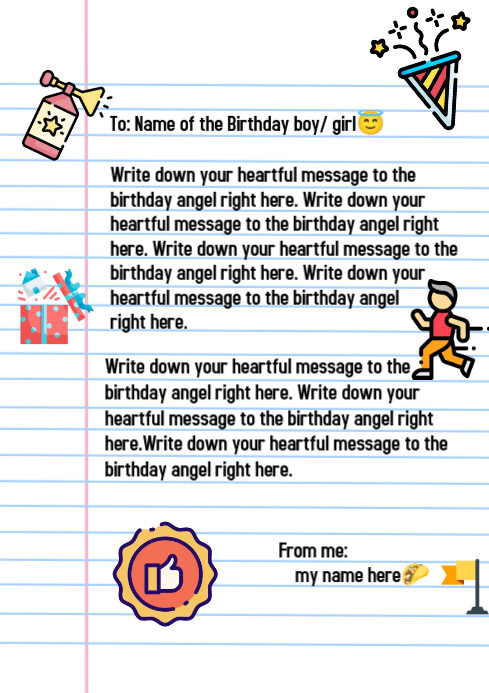 To: Name of the Birthday boy/ girl😇
Write down your heartful message to the
birthday angel right here. Write down your
heartful message to the birthday angel right
here. Write down your heartful message to the
birthday angel right here. Write down your
heartful message to the birthday angel
right here.
Write down your heartful message to the
birthday angel right here. Write down your
heartful message to the birthday angel right
here.Write down your heartful message to the
birthday angel right here.
From me:
my name here🌮